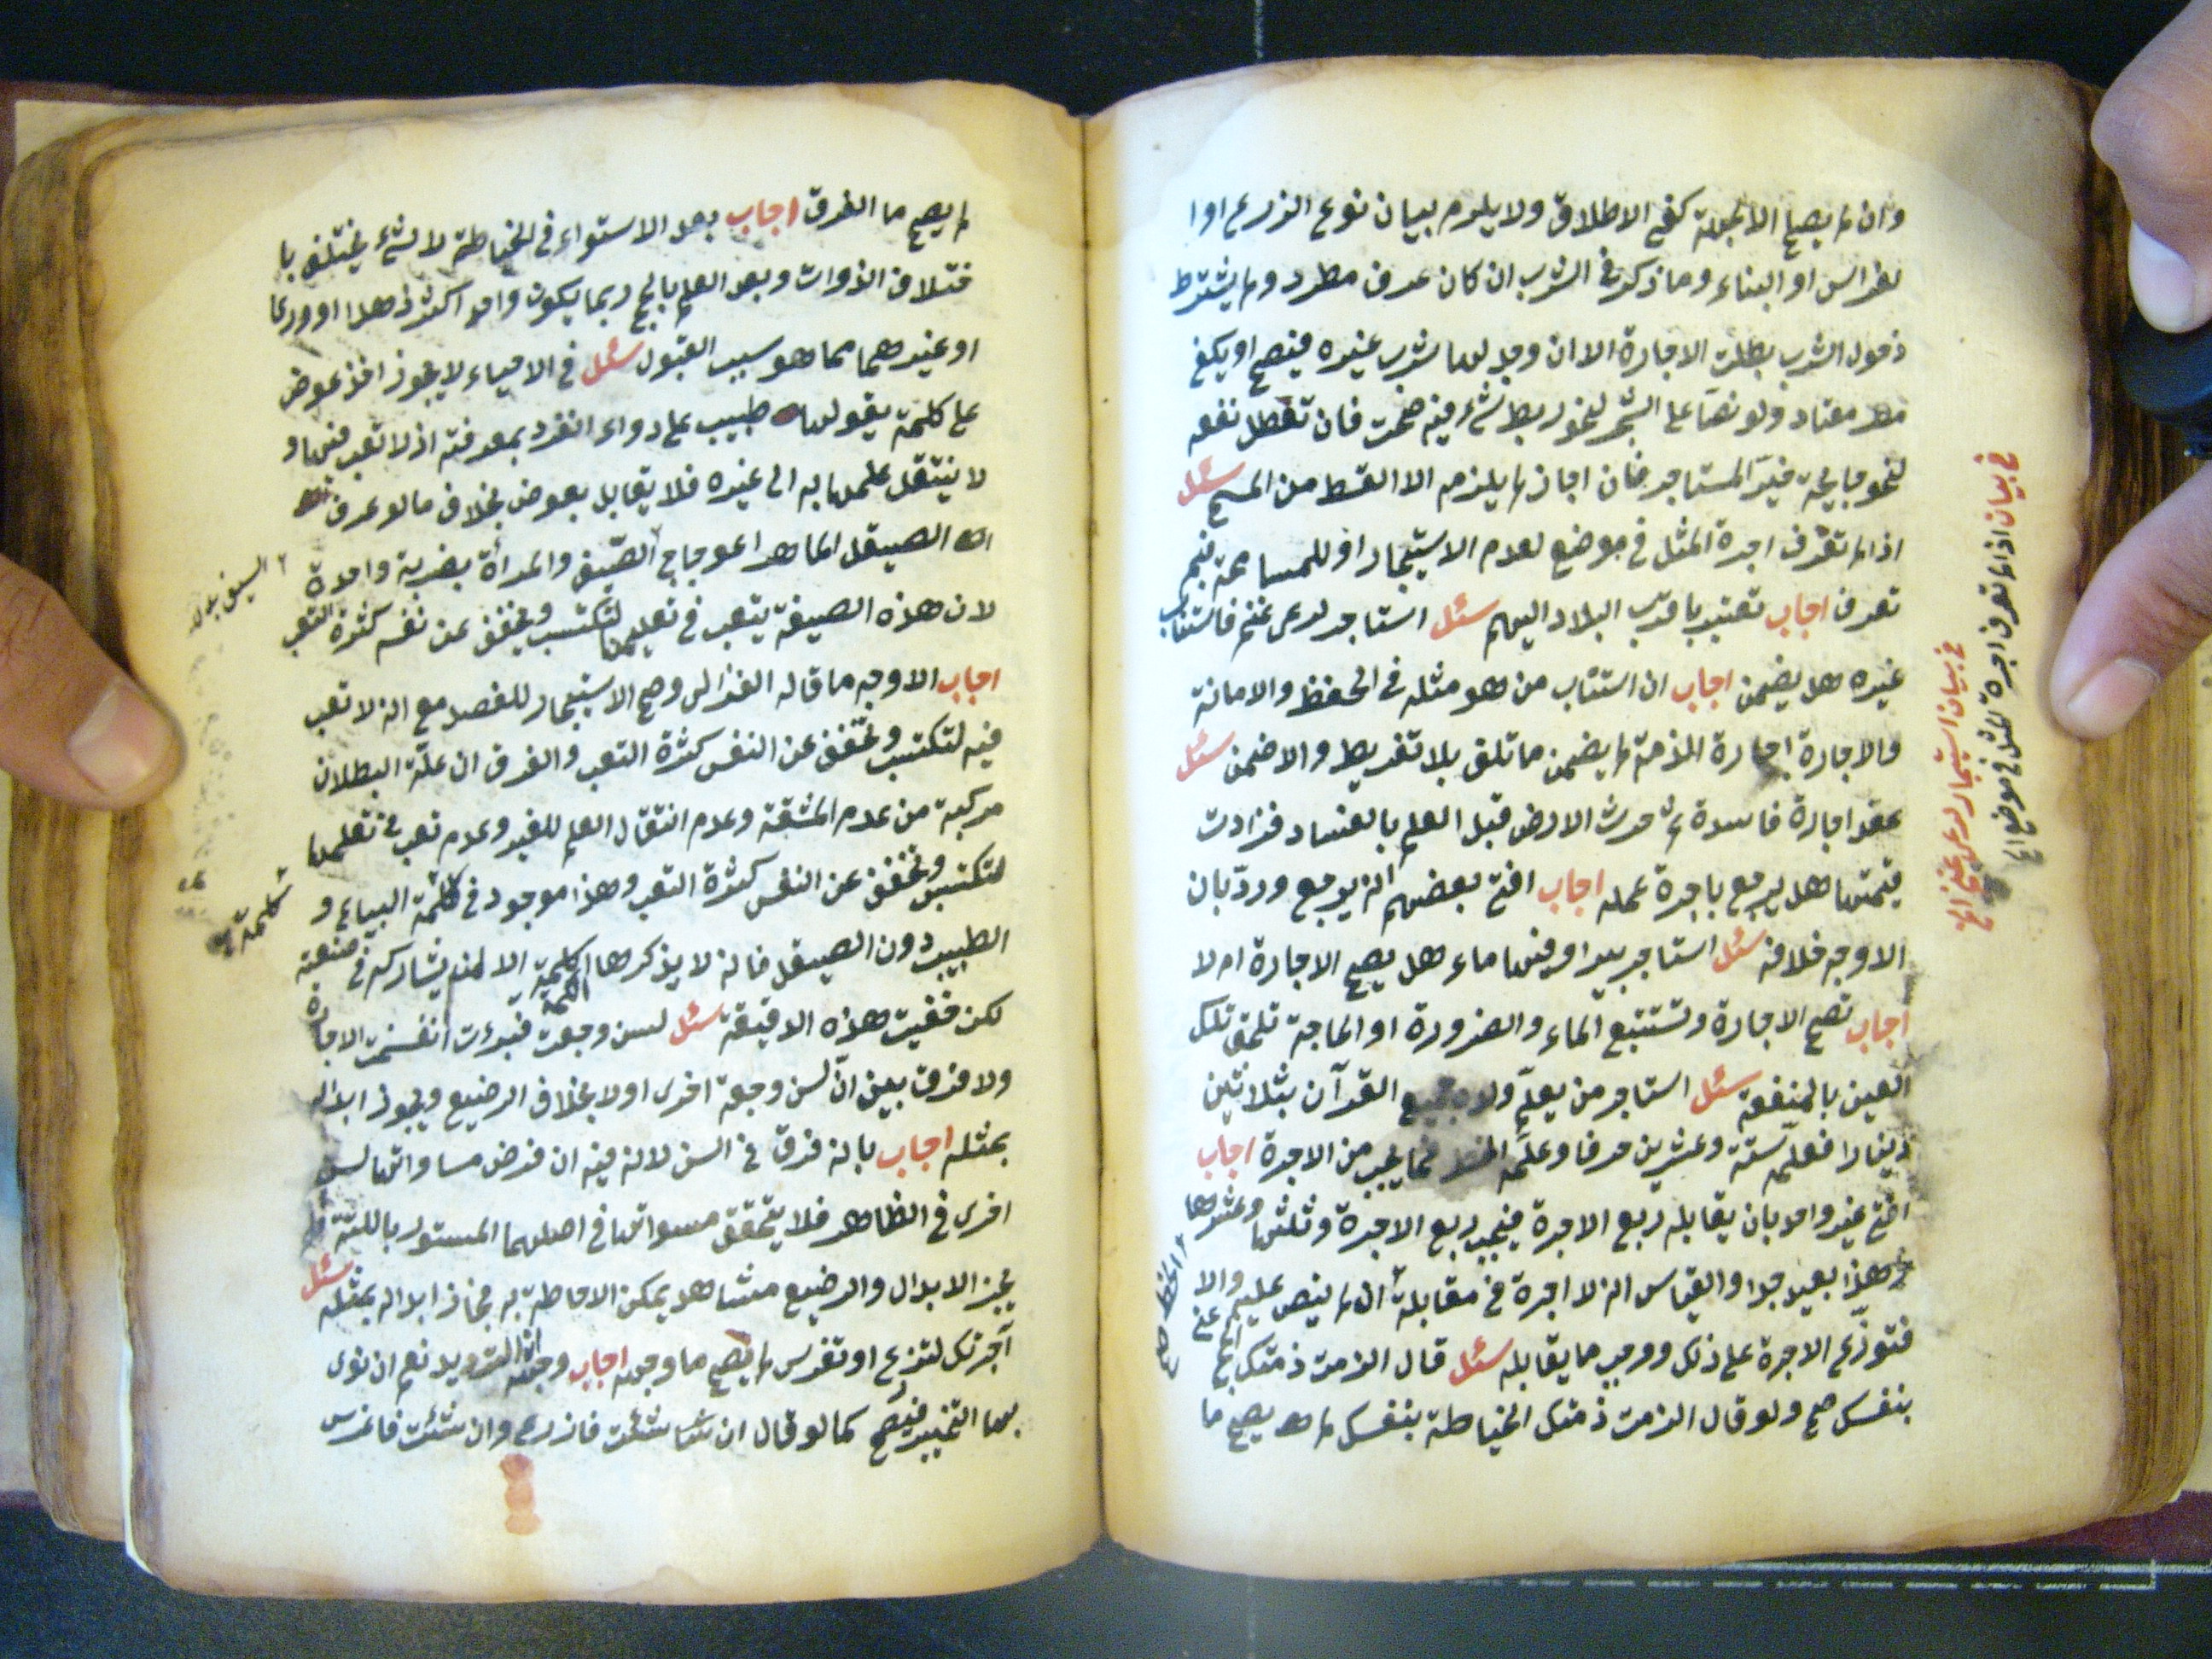 وان لم يصح الا لجهة كفى الاطلاق ولا يلزم بيان نوع الزرع او ا
لغراس او البناء وما ذكر في الشرب ان كان عرف مطرد ولم يشترط
دخول الشرب بطلت الاجارة الا ان وجد لها شرب غيره فيصح او يكفي
مطر معتاد ولو نصا على الشجر لنحو ربط شيء فيه صحت فان تعطل نفعه
لنحو جايحة خير المستاجر فان اجاز لم يلزمه الا القسط من المسمى سئل
اذا لم تعرف اجرة المثل في موضع لعدم الاستيجار او للمسامحة فبم
تعرف اجاب تعتبر باقرب البلاد اليهم سئل استاجر لرعي غنم فاستناب
غيره هل يضمن اجاب ان استناب من هو مثله في الحفظ والامانة
والاجارة اجارة الذمة لم يضمن ما تلف بلا تفريط والا ضمن سئل
عقد اجارة فاسدة ثم حرث الارض قبل العلم بالفساد فزادت
قيمتها هل يرجع باجرة عمله اجاب افتى بعضهم انه يرجع وردّ بان
الاوجه خلافه سئل استاجر بيرا وفيها ماء هل يصح الاجارة ام لا
اجاب تصح الاجارة وتستتبع الماء والضرورة او الحاجة تلحق تلك
العين بالمنفعة سئل استاجر من يعلّم ولده جميع القرآن بثلاثين
دينارا فعلّمه ستة وعشرين حرفا وعلّمه الخط فما يجب من الاجرة اجاب
افتى غير واحد بان يقابله ربع الاجرة فيجب ربع الاجرة وثلثها وعشرها
وهذا بعيد جدا والقياس انه لا اجرة في مقابلة ان لم ينص عليه والا
فتوزّع الاجرة على ذلك ووجب ما يقابله سئل قال الزمت ذمتك الحج عني
بنفسك صح ولو قال الزمت ذمتك الخياطة بنفسك لم يصح ما
في بيان اذا لم تعرف اجرة المثل في موضع الخ
في بيان استيجار لرعي غنم الخ
الخط صح
لم يصح ما الفرق اجاب بعد الاستواء في الخياطة لا لشيء يختلف با
ختلاف الذوات وبعد العلم بالحج ربما يكون واحد اكثر زهدا او ورعا
او غيرهما مما هو سبب القبول سئل في الاحياء لا يجوز اخذ عوض
على كلمة يقولها طبيب على دواء انفرد بمعرفته اذ لا تعب فيها و
لا ينتقل علمها به الى غيره فلا يقابل بعوض بخلاف ما لو عرف
الصيقل الماهر اعوجاج السيف والمرأة بضربة واحدة
لان هذه الصيغة يتعب في تعليمها لتكتسب ويخفف عن نفسه كثرة التعب
اجاب الاوجه ما قاله الغزالي وصح الاستيجار للفصد مع انه لا تعب
فيه لتكتسب وتخفف عن النفس كثرة التعب والفرق ان علّة البطلان
مركبة من عدم المشقة وعدم انتقال العلم للغير وعدم تعب في تعلمها
لتكتسب وتخفف عن النفس كثرة التعب وهذا موجود في كلمة البياع و
الطبيب دون الصيقل فانه لا يذكرها الكلمة الا لمن يشاركه في صنعته
لكن خفيت هذه الدقيقة سئل لسن وجعت فبرءت انفسخت الاجارة
ولا فرق بين انّ لسن وجعة اخرى او لا بخلاف الرضيع ويجوز ابداله
بمثله اجاب بانه فرق في السن لانه فيه ان فرض مساواتها لسن
اخرى في الظاهر فلا يتحقق مسواتها في اصلهما المستور باللثة فلم
يجز الابدال والرضيع مشاهد يمكن الاحاطة به فجاز ابداله بمثله سئل
آجرتك لتزرع او تغرس لم يصح ما وجهه اجاب وجهه انه الترديد نعم ان نوى
بهما التخيير فيصح كما لو قال ان شئت فازرع وان شئت فاغرس
السيف
كلمة